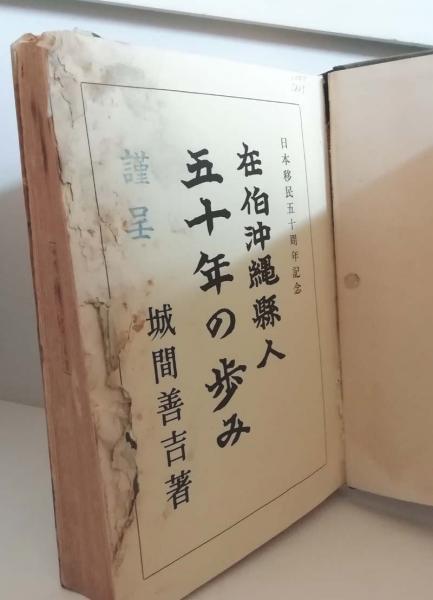 日本移民五十周年記念
在伯沖縄縣人
五十年の歩み
城間善吉著
謹呈